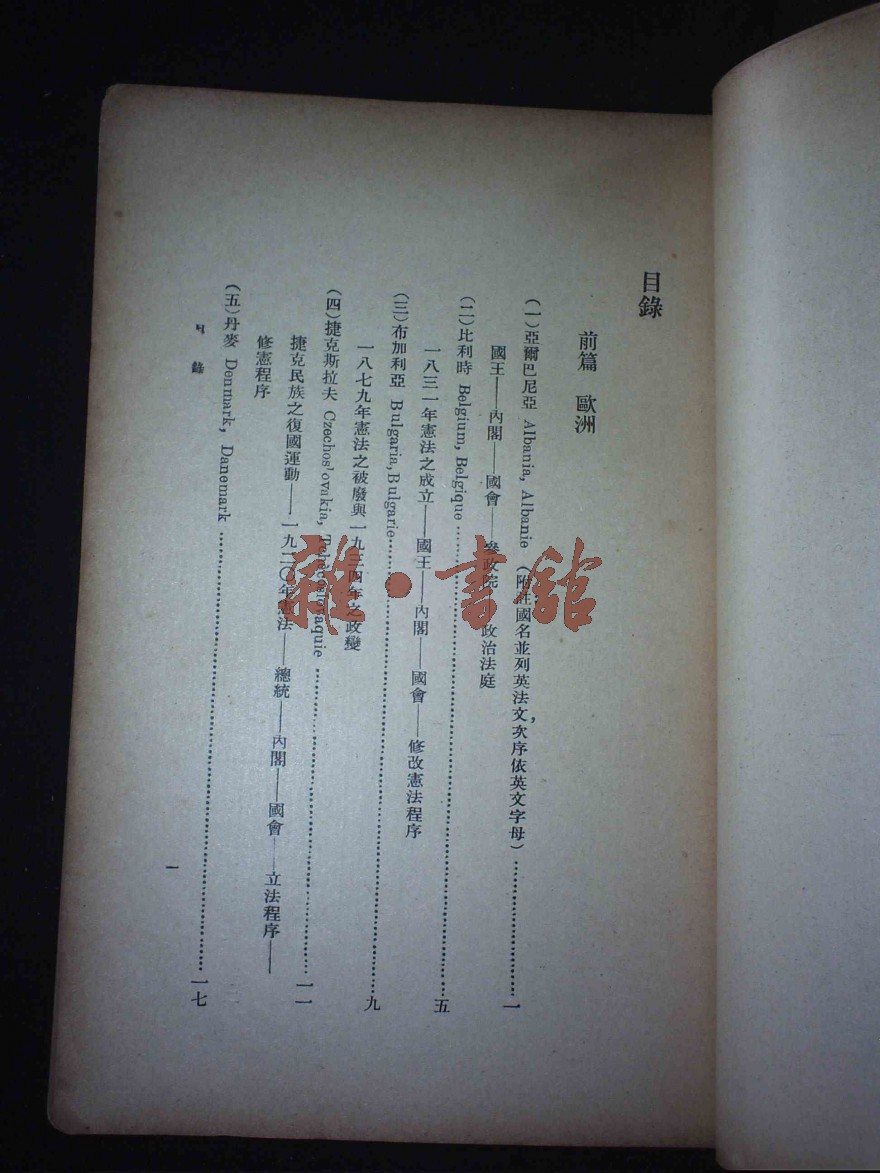 目錄
前篇 歐洲
(一)亞爾巴尼亞 Albania, Albanie (附註國名並列英法文,次序依英文字母)……一
國王——內閣——國會——參政院——政治法庭
(二)比利時 Belgium, Belgique……五
一八三一年憲法之成立——國王——內閣——國會——修改憲法程序
(三)布加利亞 Bulgaria, Bulgarie……九
一八七九年憲法之被廢與一九三四年之政變
(四)捷克斯拉夫 Czechos'ovakia, Tchécoslovaquie……一一
捷克民族之復國運動——一九二〇年憲法——總統——內閣——國會——立法程序——
修憲程序
(五)丹麥 Denmark, Danemark……一七
目錄
一
雜·書館